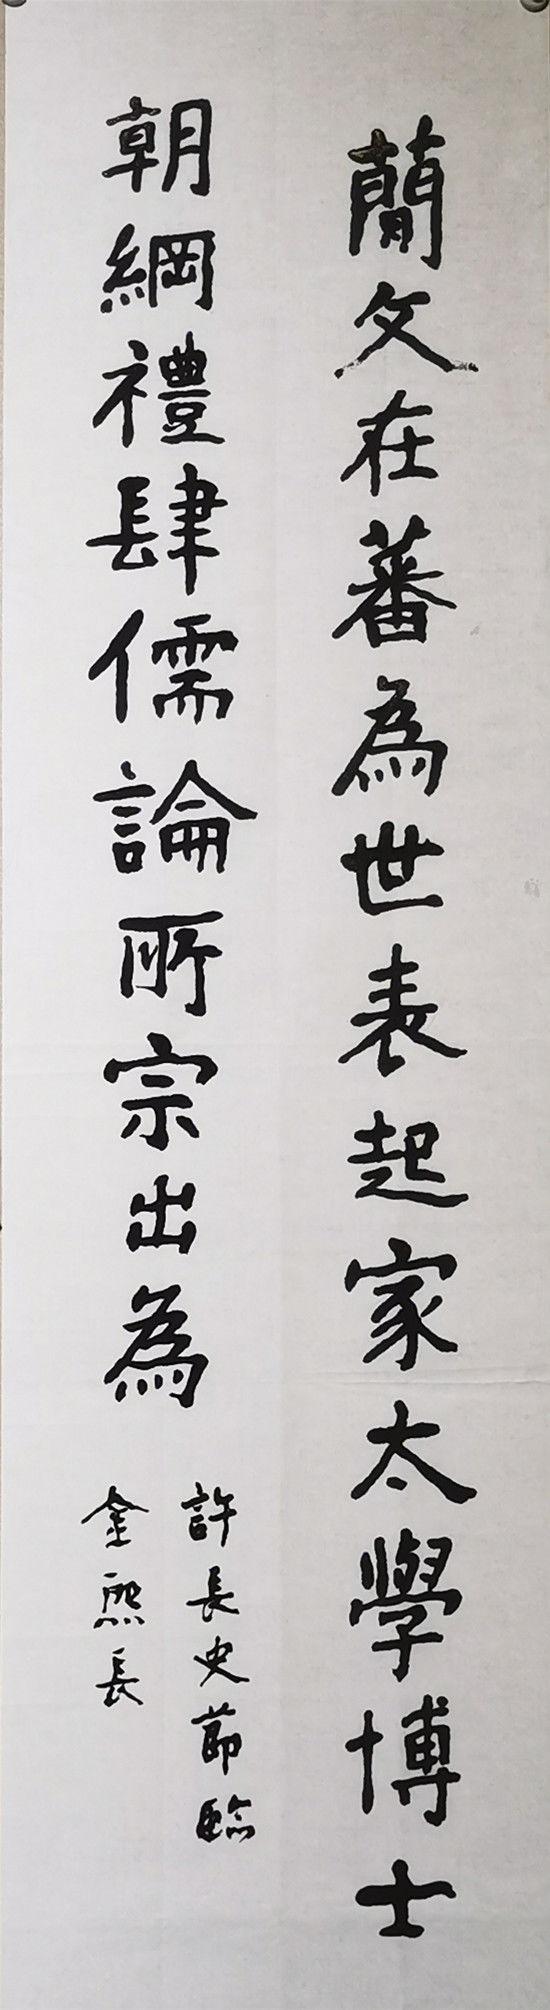 蕑文在蕃為世表起家太學博士
朝綱禮肆儒論所宗出為
許長史節臨
金熙長